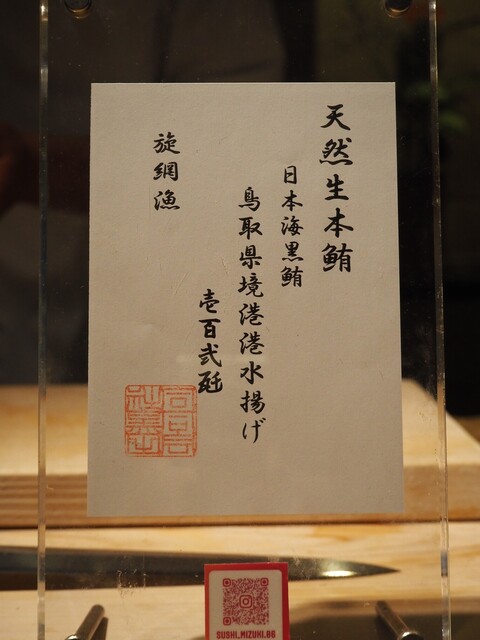 天然生本鮪
日本海黒鮪
鳥取県境港港水揚げ
壱百弐瓩
旋網漁
SUSHI.MIZUKI.86